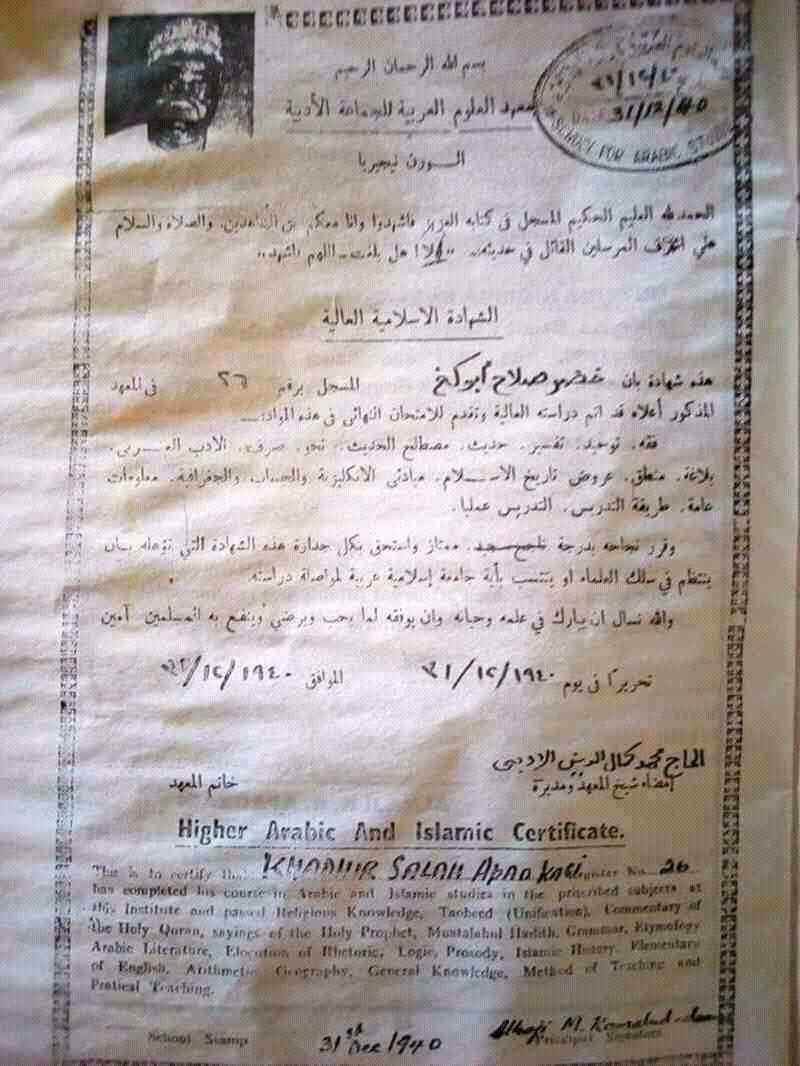 بسم الله الرحمان الرحيم
معهد العلوم العربية للجماعة الأدبية
السورن نيجيريا
٣١/١٢/٤٠
31/12/40
SCHOOL FOR ARABIC
الحمد لله العليم الحكيم المسجل فى كتابه العزيز فاشهدوا وانا معكم من الشاهدين. والصلاة والسلام
على اشرف المرسلين القائل في حديثه. ,,الا! هل بلغت ـ اللهم فاشهد,,
الشهادة الاسلامية العالية
هذه شهادة بان خضر صلاح أبوكج المسجل برقم ٢٦ فى المعهد
المذكور أعلاه قد اتم دراسته العالية وتقدم للامتحان النهائى فى هذه المواد:ـ
فقه. توحيد. تفسير. حديث. مصطلح الحديث. نحو. صرف. الادب العـــربى.
بلاغة. منطق. عروض تاريخ الاســلام. مبادئى الانكليزية والحساب والجغرافية. معلومات
عامة. طريقة التدريس. التدريس عمليا.
وقرر نجاحه بدرجة ناجح جيد. ممتاز واستحق بكل جدارة هذه الشهادة التي تؤهله بان
ينتظم في سلك العلماء او ينتسب بأية جامعة إسلامية عربية لمواصلة دراسته.
والله نسال ان يبارك في علمه وحياته وان يوفقه لما يحب ويرضى وينفع به المسلمين آمين
تحريرًا فى يوم ٣١/١٢/١٩٤٠ الموافق ٣١/١٢/١٩٤٠
الحاج محمد كمال الدين الادبى
إمضاء شيخ المعهد ومديرة خاتم المعهد
Higher Arabic And Islamic Certificate.
This is to certify that KHADHIR SALAH Register No. 26
has completed his course in Arabic and Islamic studies in the priscribed subjects at
this Institute and passed Religious Knowledge, Taoheed (Unification), Commentary of
the Holy Quran, sayings of the Holy Prophet, Mustalahul Hadith, Grammar, Etymology
Arabic Literature, Elocution of Rhetoric, Logic, Prosody, Islamic History, Elementary
of English, Arithmetic Geography, General Knowledge, Method of Teaching and
Pratical Teaching.
School Stamp 31st Dec 1940 Alhaji M. Kamalud-deen
Principal Signature